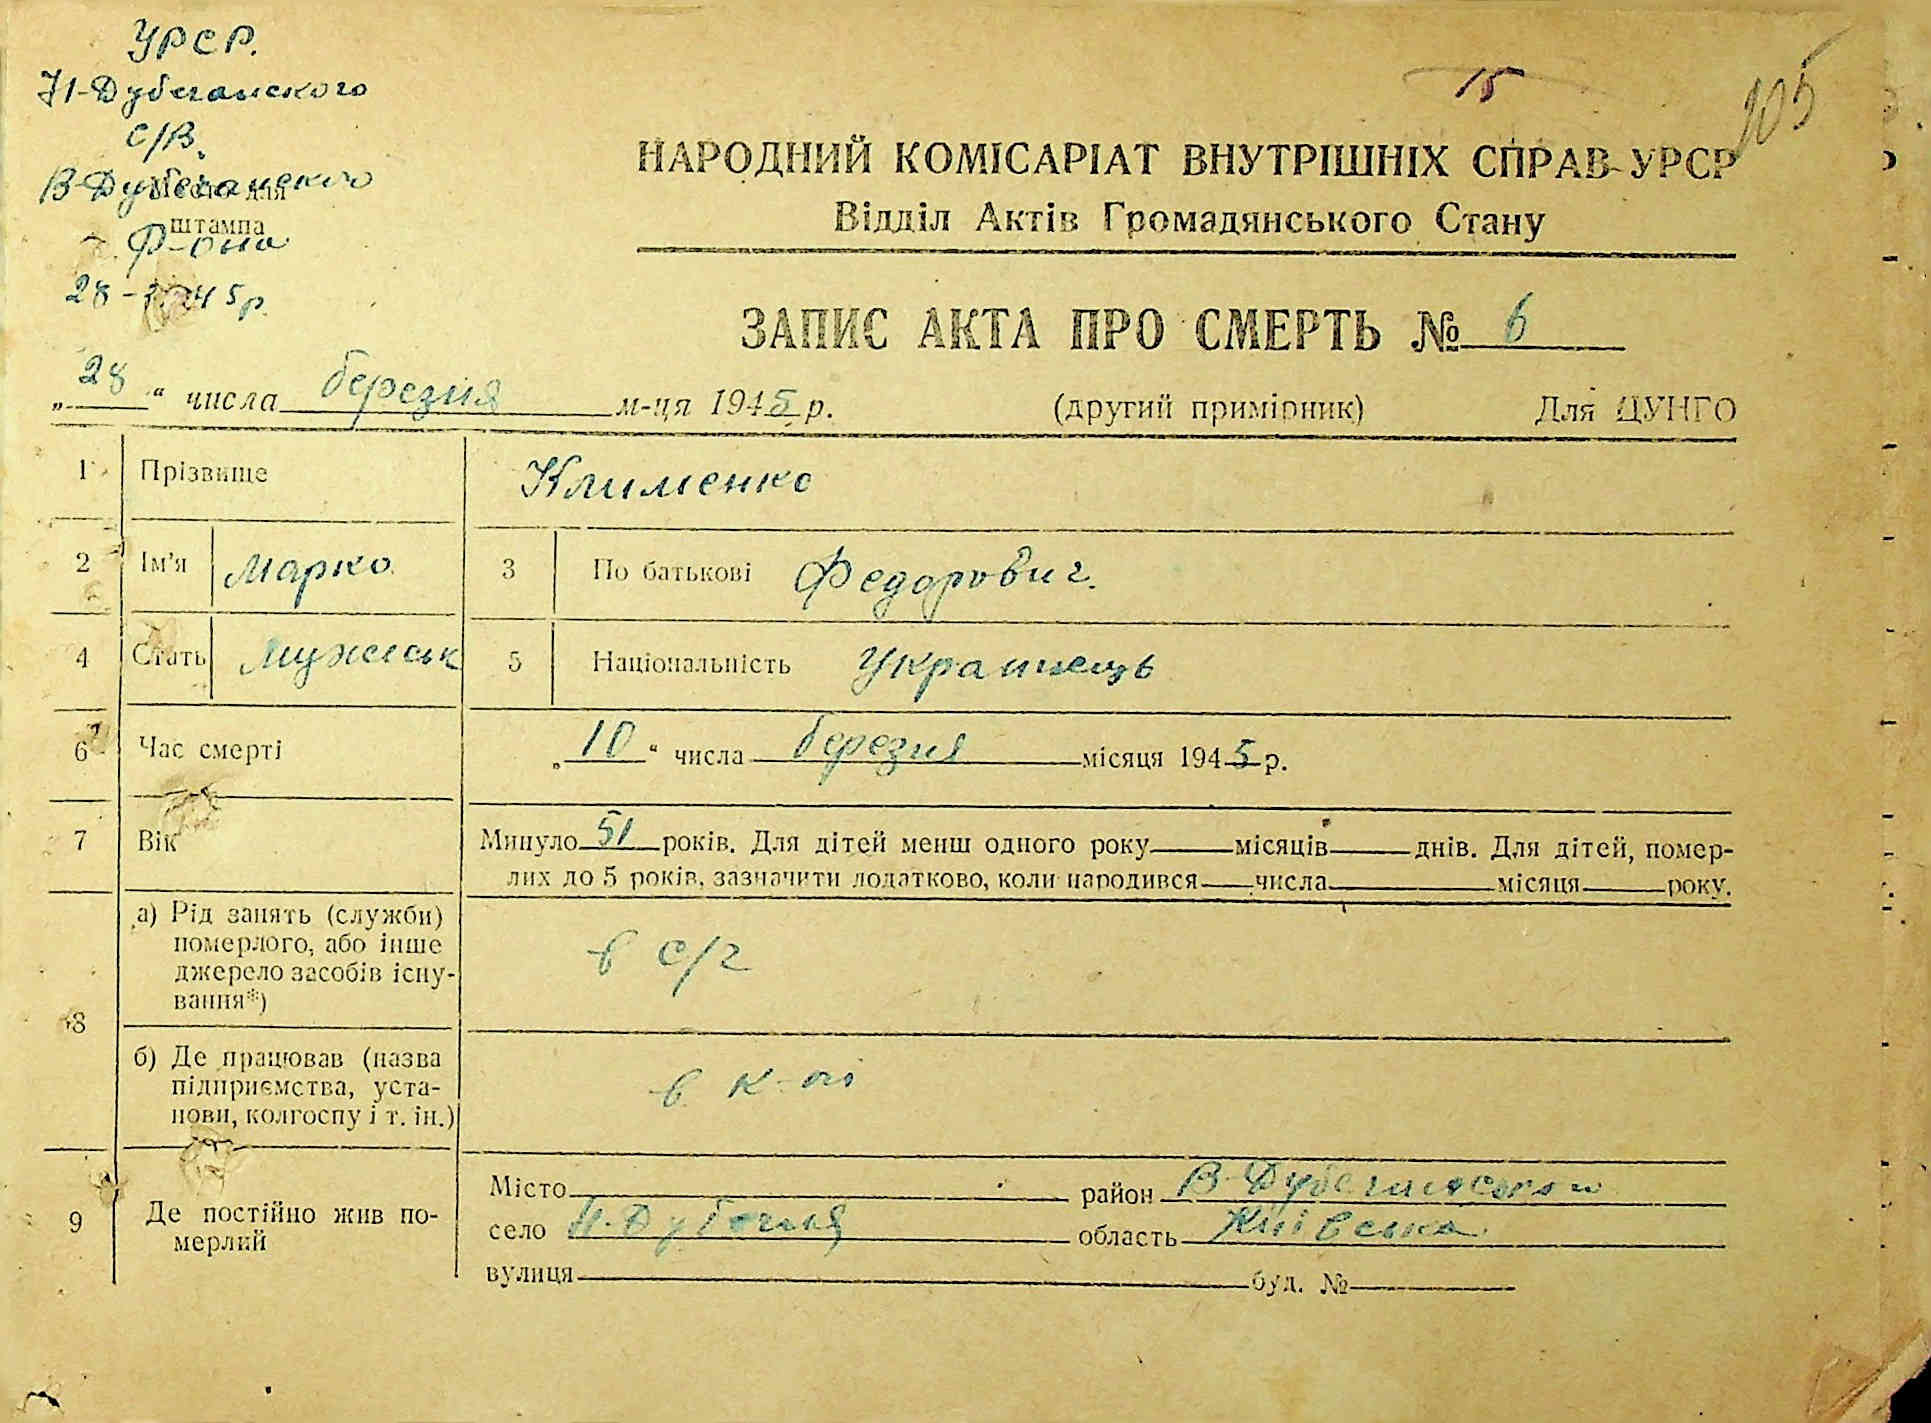 УРСР.
Н-Дубечанского
С/В.
В-Дубечанского
Місце для
штампа
Р-она
28-3-45р.
15
105
НАРОДНИЙ КОМІСАРІАТ ВНУТРІШНІХ СПРАВ УРСР
Відділ Актів Громадянського Стану
ЗАПИС АКТА ПРО СМЕРТЬ № 6
„28“ числа березня м-ця 1945 р.
(другий примірник) Для ЦУНГО
1 Прізвище Клименко
2 Ім'я Марко 3 По батькові Федорович.
4 Стать мужеськ 5 Національність Українець
6 Час смерті „10“ числа березня місяця 1945 р.
7 Вік Минуло 51 років. Для дітей менш одного року місяців днів. Для дітей, помер-
лих до 5 років, зазначити додатково, коли народився числа місяця року.
8 а) Рід занять (служби)
померлого, або інше
джерело засобів існу-
вання*)
в с/г
б) Де працював (назва
підприємства, уста-
нови, колгоспу і т. ін.)
в к-пі
9 Де постійно жив по-
мерлий
Місто район В-Дубечанского
село Н-Дубечня область Київська
вулиця буд. №